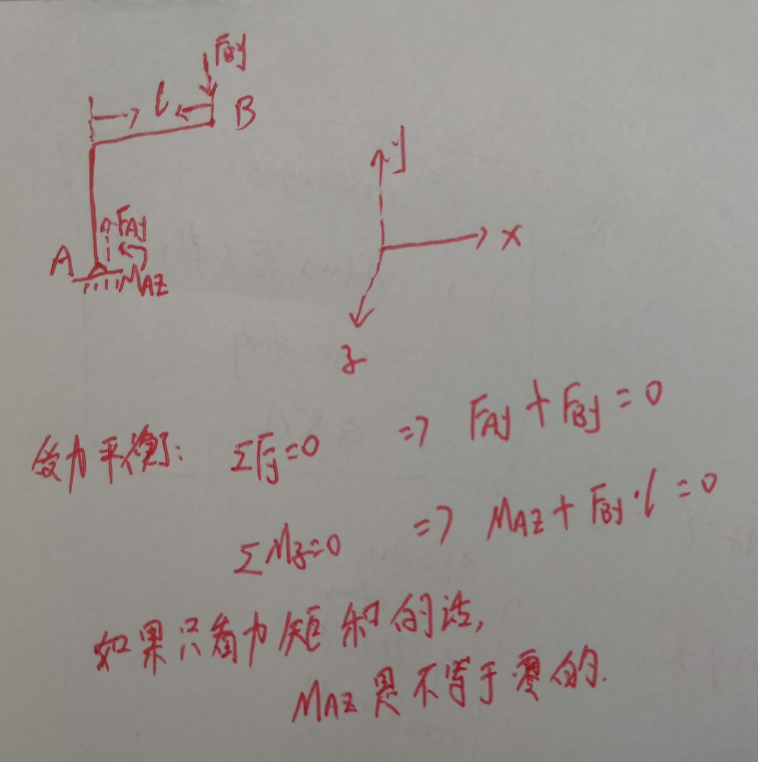 FBy
l
B
FAy
A
MAZ
y
x
z
受力平衡: ΣFy=0 => FAy + FBy = 0
ΣMz=0 => MAZ + FBy·l = 0
如果只看力矩和的话,
MAZ是不等于零的.